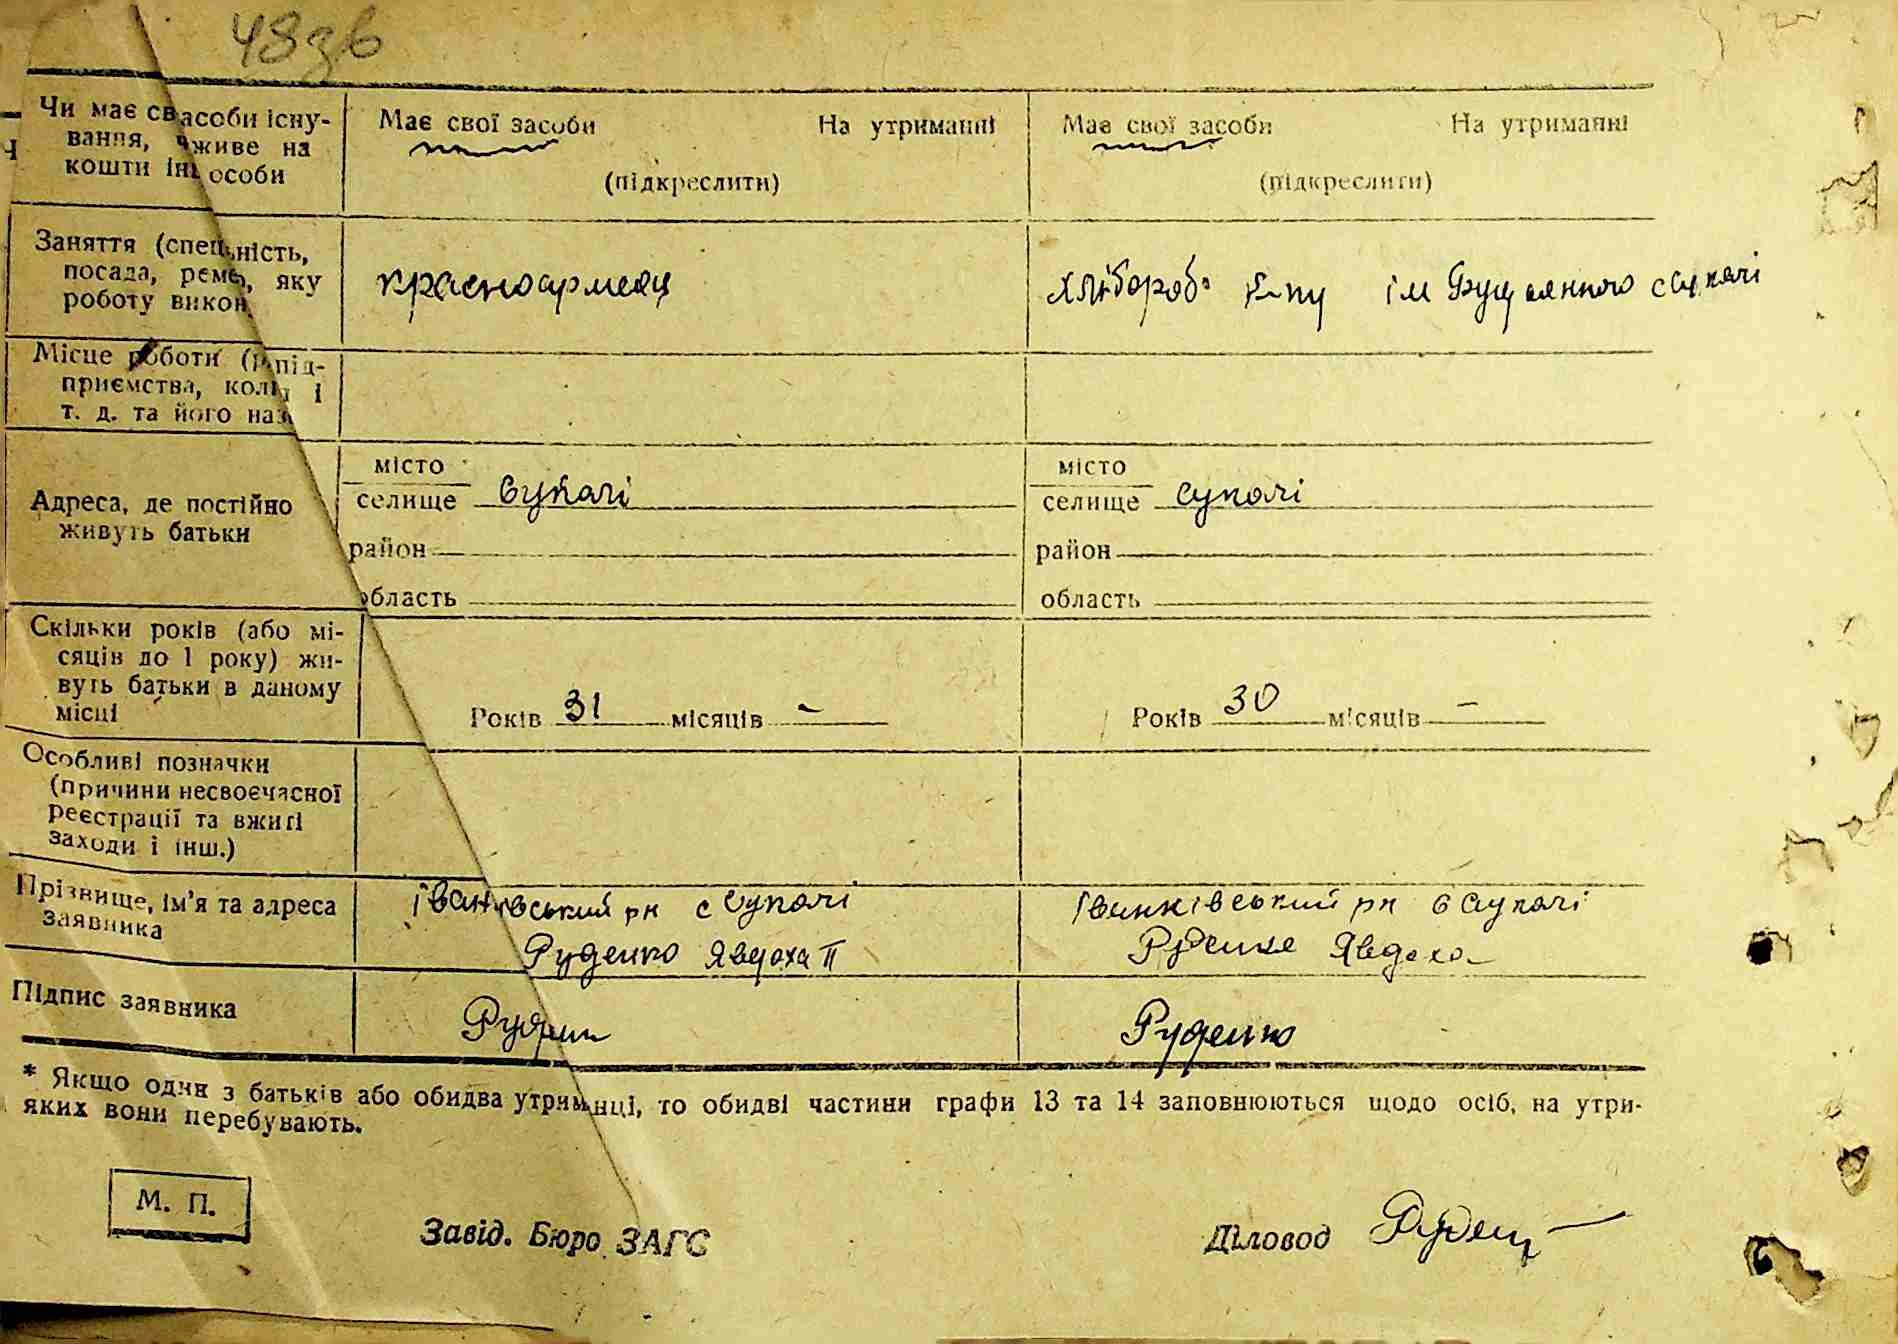 48зв
Чи має св асоби існу-
вання, живе на
кошти ін особи
Має свої засоби На утриманні
(підкреслити)
Має свої засоби На утриманні
(підкреслити)
Заняття (спец ність,
посада, реме , яку
роботу викон
красноармеец
хлібороб ім с Сукачі
Місце роботи ( під-
приємства, кол і
т. д. та його наз
Адреса, де постійно
живуть батьки
місто
селище Сукачі
район
область
місто
селище Сукачі
район
область
Скільки років (або мі-
сяців до 1 року) жи-
вуть батьки в даному
місці
Років 31 місяців -
Років 30 місяців -
Особливі позначки
(причини несвоєчасної
реєстрації та вжиті
заходи і інш.)
Прізвище, ім'я та адреса
заявника
Іванківський рн с Сукачі
Руденко Явдоха П
Іванківський рн с Сукачі
Руденко Явдоха
Підпис заявника
Руден
Руденко
* Якщо один з батьків або обидва утриманці, то обидві частини графи 13 та 14 заповнюються щодо осіб, на утри-
яких вони перебувають.
М. П.
Завід. Бюро ЗАГС
Діловод